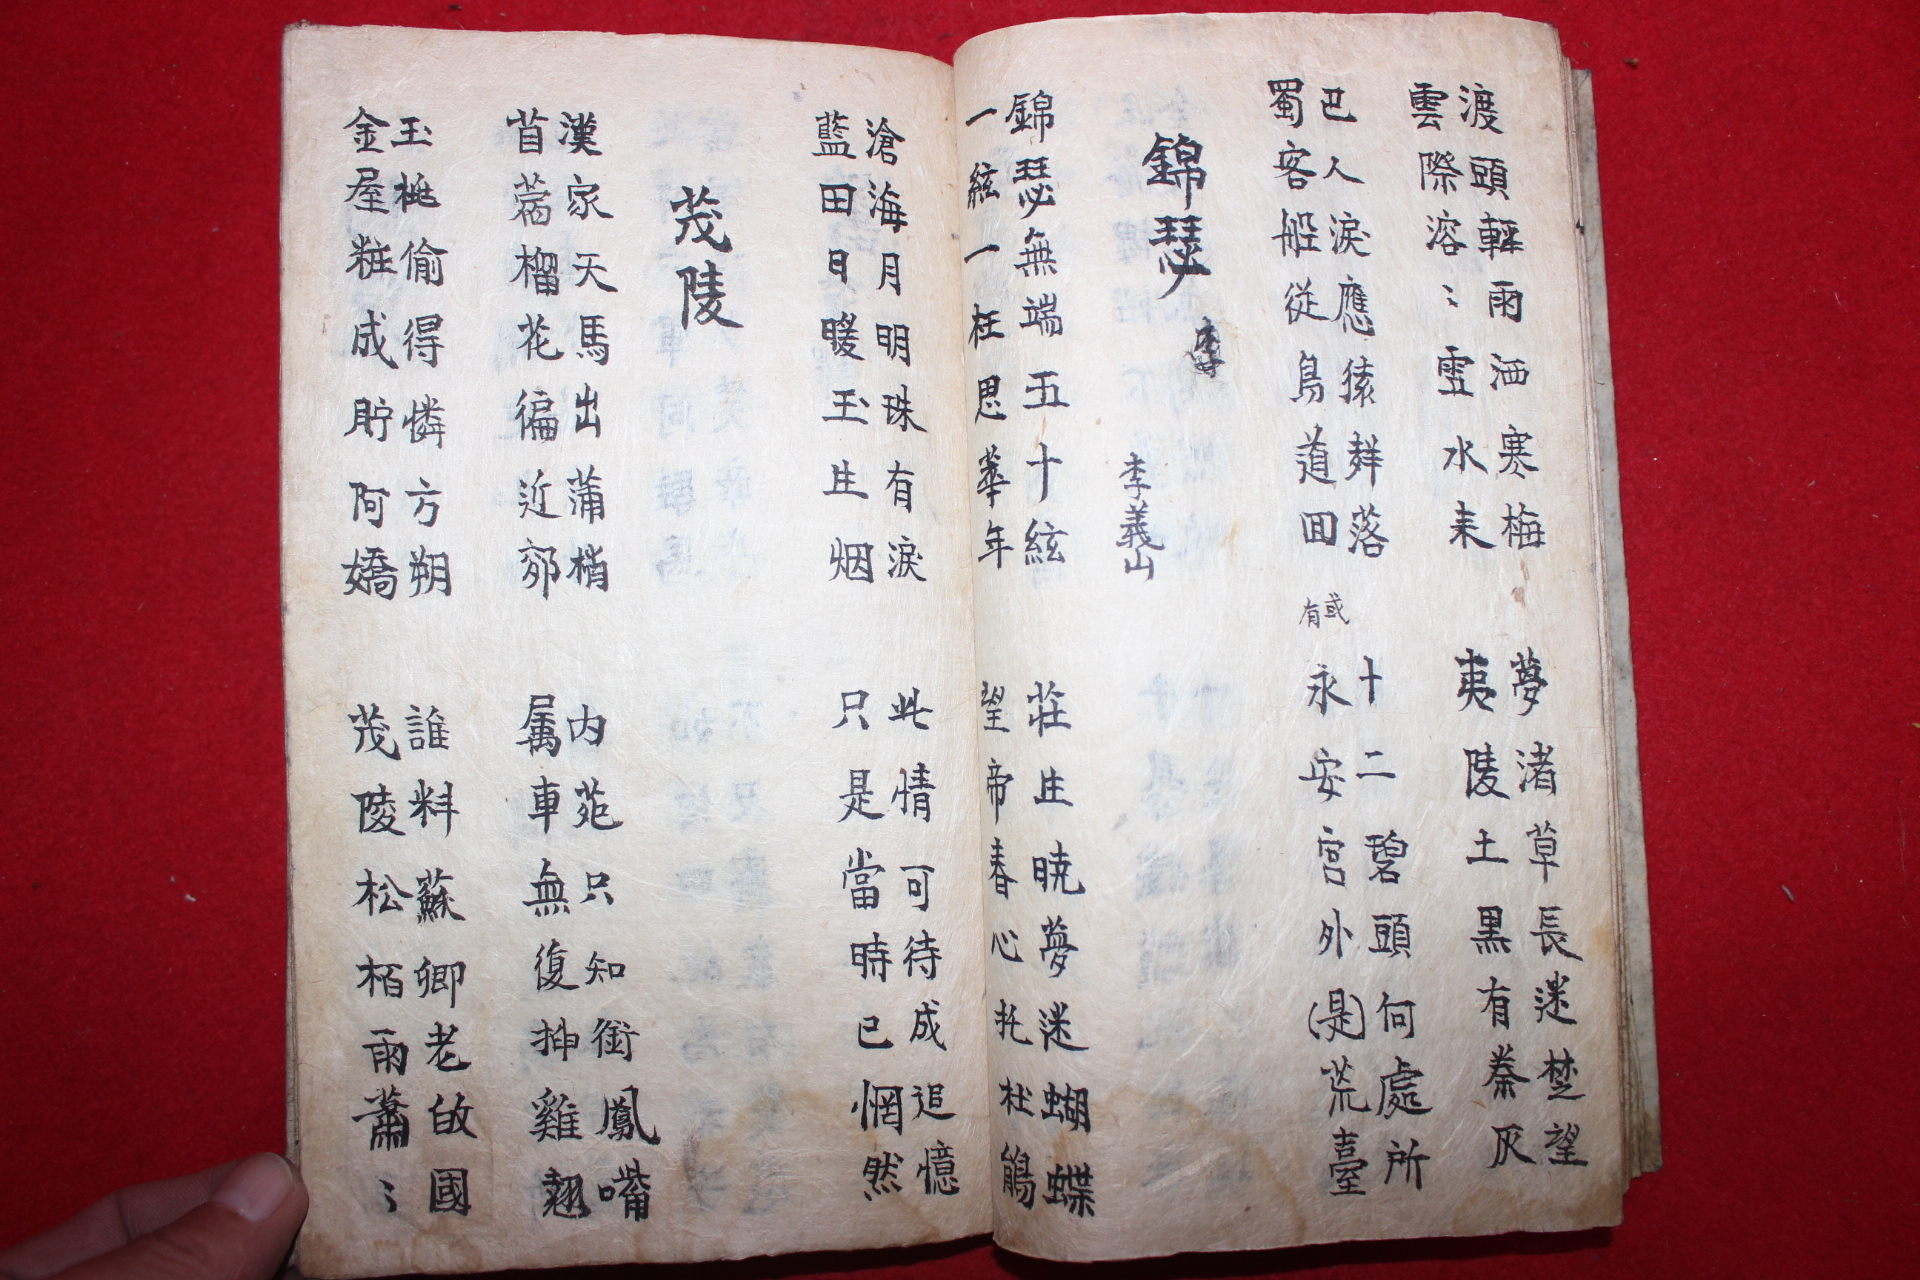 渡頭輕雨洒寒梅
雲際溶〻雪水来
夢渚草長迷楚望
夷陵土黒有秦灰
巴人淚應猿落
蜀客船從鳥道囬
或有
十二碧頭何處所
永安宮外(是)荒臺
錦瑟
李義山
錦瑟無端五十絃
一絃一柱思華年
莊生暁夢迷蝴蝶
望帝春心托杜鵑
滄海月明珠有淚
藍田日暖玉生烟
此情可待成追憶
只是當時已惘然
茂陵
漢家天馬出蒲梢
苜蓿榴花徧近郊
内苑只知銜鳳嘴
属車無復挿雞翹
玉桃偷得憐方朔
金屋粧成貯阿嬌
誰料蘇卿老故國
茂陵松栢雨蕭〻